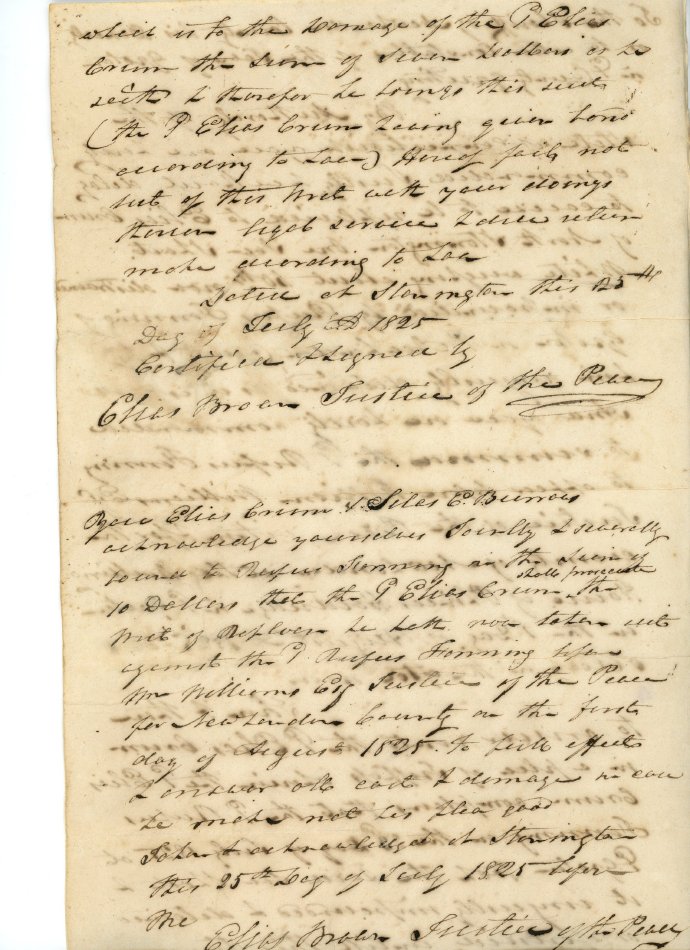 which is to the Damage of the P Elias
Crum the Sum of Seven Dollars as he
saith & therefor he brings this suit
(the P Elias Crum having given bond
according to Law) Hereof fail not
but of this Writ with your doings
thereon legal service & due return
make according to Law
Dated at Stonington this 25th
Day of July AD 1825
Certified & Signed by
Elias Brown Justice of the Peace
You Elias Crum & Silas E. Burrows
acknowledge yourselves Jointly & severally
bound to Rufus Fanning in the Sum of
10 Dollars that the P Elias Crum shall prosecute the
Writ of Replevin he hath now taken out
against the P Rufus Fanning before
Wm Williams Esq Justice of the Peace
for New London County on the first
day of August 1825. to full effect
& answer all cost & damage in case
he make not his plea good
Taken & acknowledged at Stonington
this 25th Day of July 1825 before
Me
Elias Brown Justice of the Peace